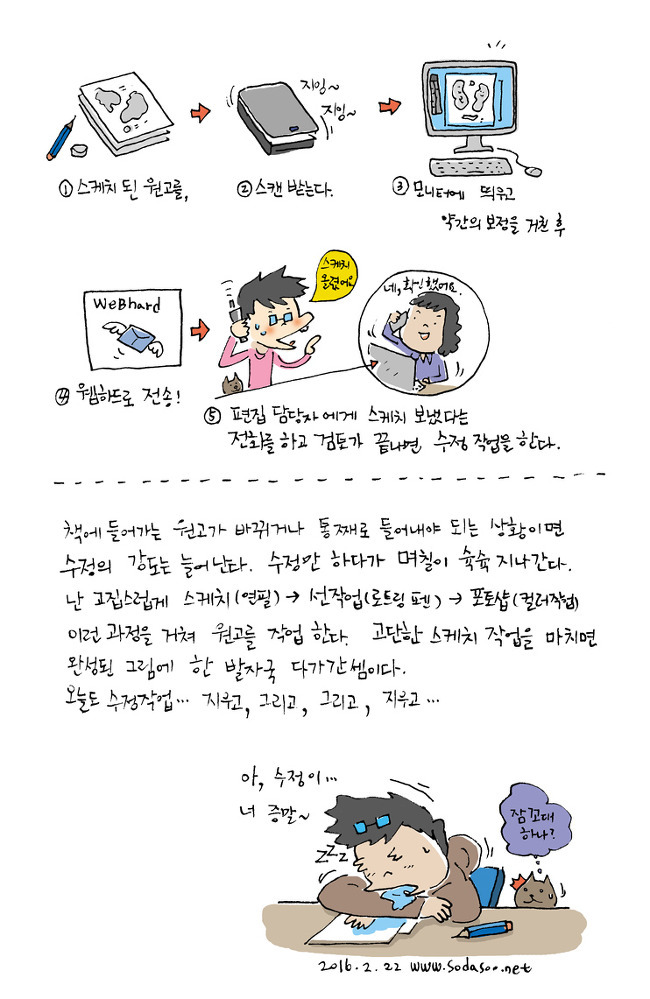 지잉~
지잉~
① 스케치 된 원고를,
② 스캔 받는다.
③ 모니터에 띄우고
약간의 보정을 거친 후
WeBhard
④ 웹하드로 전송!
스케치
올렸어요
네, 확인했어요.
⑤ 편집 담당자에게 스케치 보냈다는
전화를 하고 검토가 끝나면 수정 작업을 한다.
책에 들어가는 원고가 바뀌거나 통째로 들어내야 되는 상황이면
수정의 강도는 늘어난다. 수정만 하다가 며칠이 슉슉 지나간다.
난 고집스럽게 스케치(연필) → 선작업(로트링 펜) → 포토샵(컬러작업)
이런 과정을 거쳐 원고를 작업 한다. 고단한 스케치 작업을 마치면
완성된 그림에 한 발자국 다가간셈이다.
오늘도 수정작업... 지우고, 그리고, 그리고, 지우고...
아, 수정이...
너 증말~
zzz
잠꼬대
하나?
2016.2.22 www.sodasoo.net